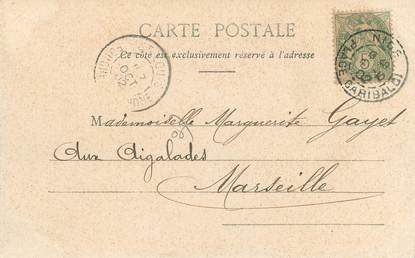 CARTE POSTALE
Ce côté est exclusivement réservé à l'adresse
NICE
PLACE GARIBALDI
Mademoiselle Marguerite Gayet
Aux Aigalades
Marseille